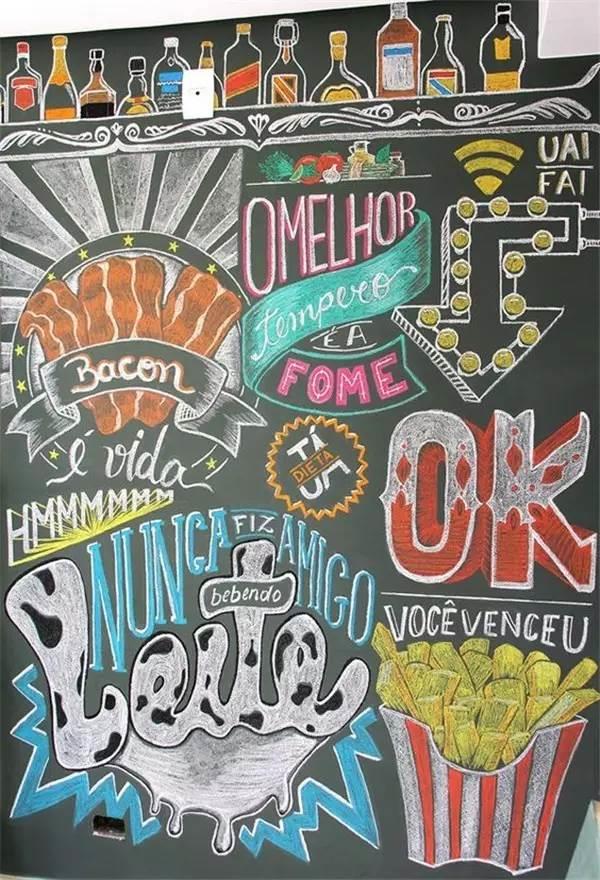 UAI
FAI
O MELHOR
tempero
É A
FOME
Bacon
é vida
TÁ
DIETA
HMMMMMMM
OK
NUNCA FIZ AMIGO
bebendo
Leite
VOCÊ VENCEU